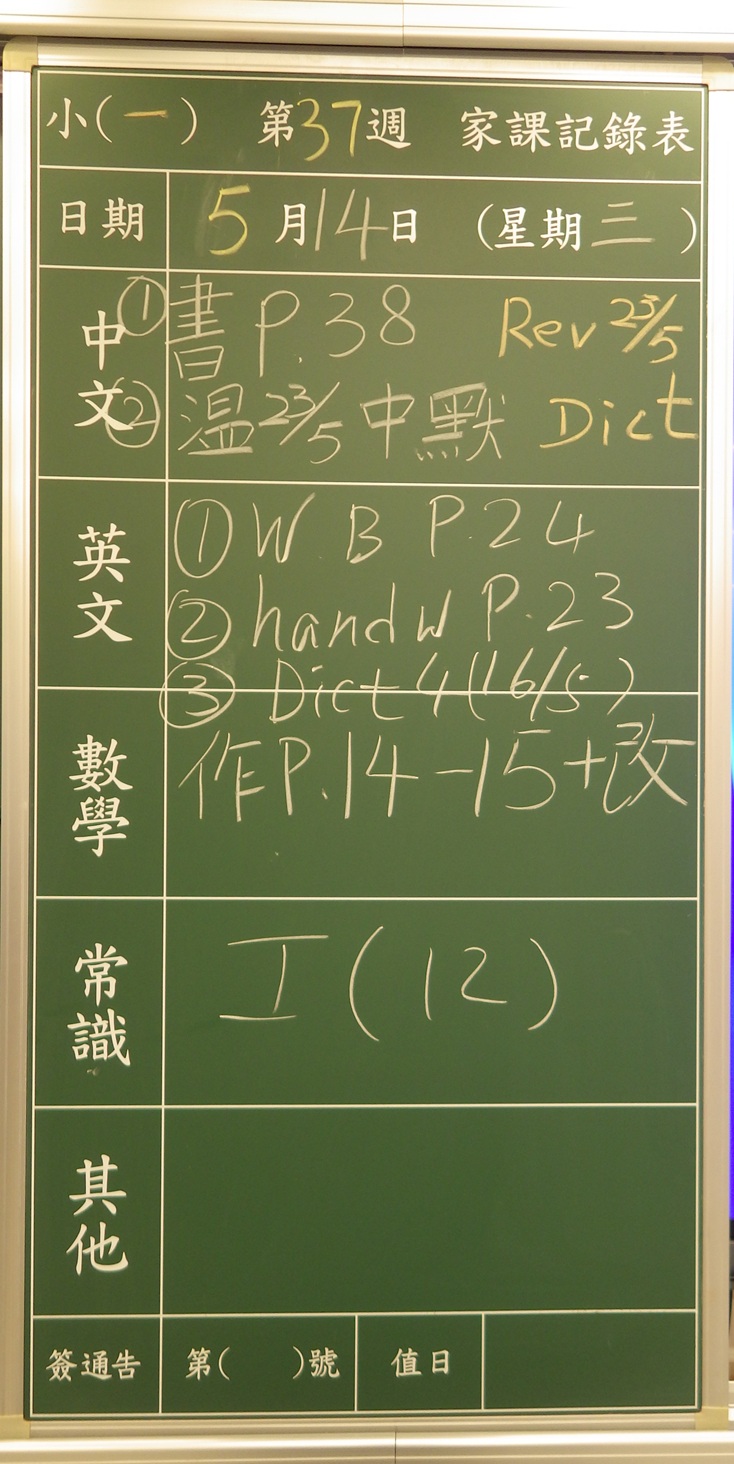 小(一) 第37週 家課記錄表
日期 5月14日 (星期三)
中文 ①書 P.38 Rev 23/5
②温23/5中默 Dict
英文 ①W.B P.24
②handw P.23
③Dict 4(16/5)
數學 作P.14-15+改
常識 工(12)
其他
簽通告 第( )號 值日